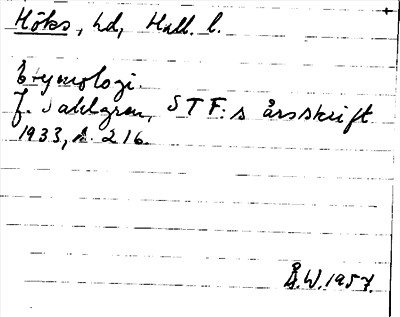 Höks, hd, Hall. l.
Etymologi.
J. Sahlgren, STF:s årsskrift
1933, s. 216.
Å.W. 1957.